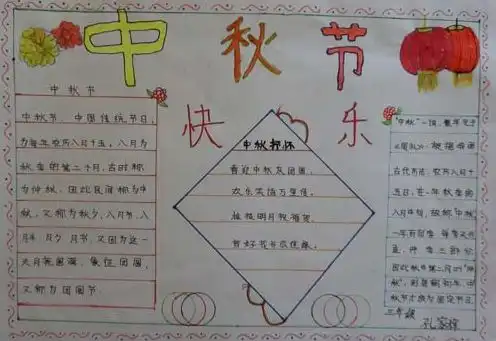 中秋节
快乐
中秋节
中秋节,中国传统节日,
为每年农历八月十五,八月为
秋季的第二个月,古时称
为仲秋,因此民间称为中
秋,又称为秋夕,八月节,八
月半,月夕,月节,又因为这一
天月亮圆满,象征团圆,
又称为团圆节。
中秋抒怀
喜迎中秋
欢乐
明月
"中秋"一词,最早见于
《周礼》。根据我国
古代历法,农历八月十
五日,在一年秋季的
八月中旬,故称"中秋"
一年有四季,每季又分
三部分,
因此秋中第二月叫"仲
秋",到唐朝初年,中
秋节才成为固定节日。
三年级